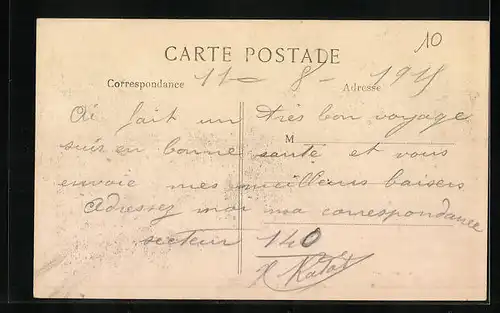 10
CARTE POSTADE
Correspondance 11 - 8 - 1915
Adresse
Ai fait un très bon voyage
M
suis en bonne santé et vous
envoie mes meilleurs baisers
Adressez moi ma correspondance
secteur 140